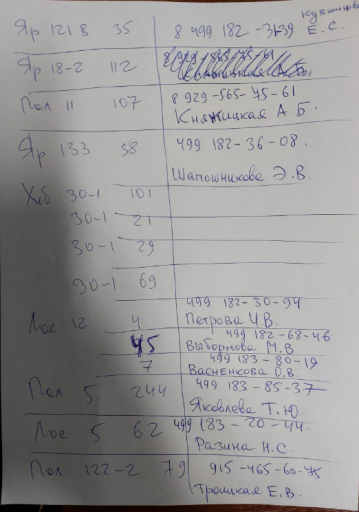 Яр 121 в 35 8 499 182-31-39 Е. С.
Яр 18-2 112
Пол 11 107 8 929-565-75-61
Княжицкая А. Б.
Яр 133 58 499 182-36-08.
Шапошникова Э. В.
Хиб 30-1 101
30-1 21
30-1 29
30-1 69
499 182-30-94
Лос 12 4 Петрова И.В.
499 182-68-46
45 Выборнова М.В
499 183-80-19
7 Васненкова О.В.
Пол 5 244 499 183-85-37
Яковлева Т.Ю
Лос 5 62 499 183-20-44.
Разина Н.С.
Пол 122-2 79 915-465-60-75
Троицкая Е.В.